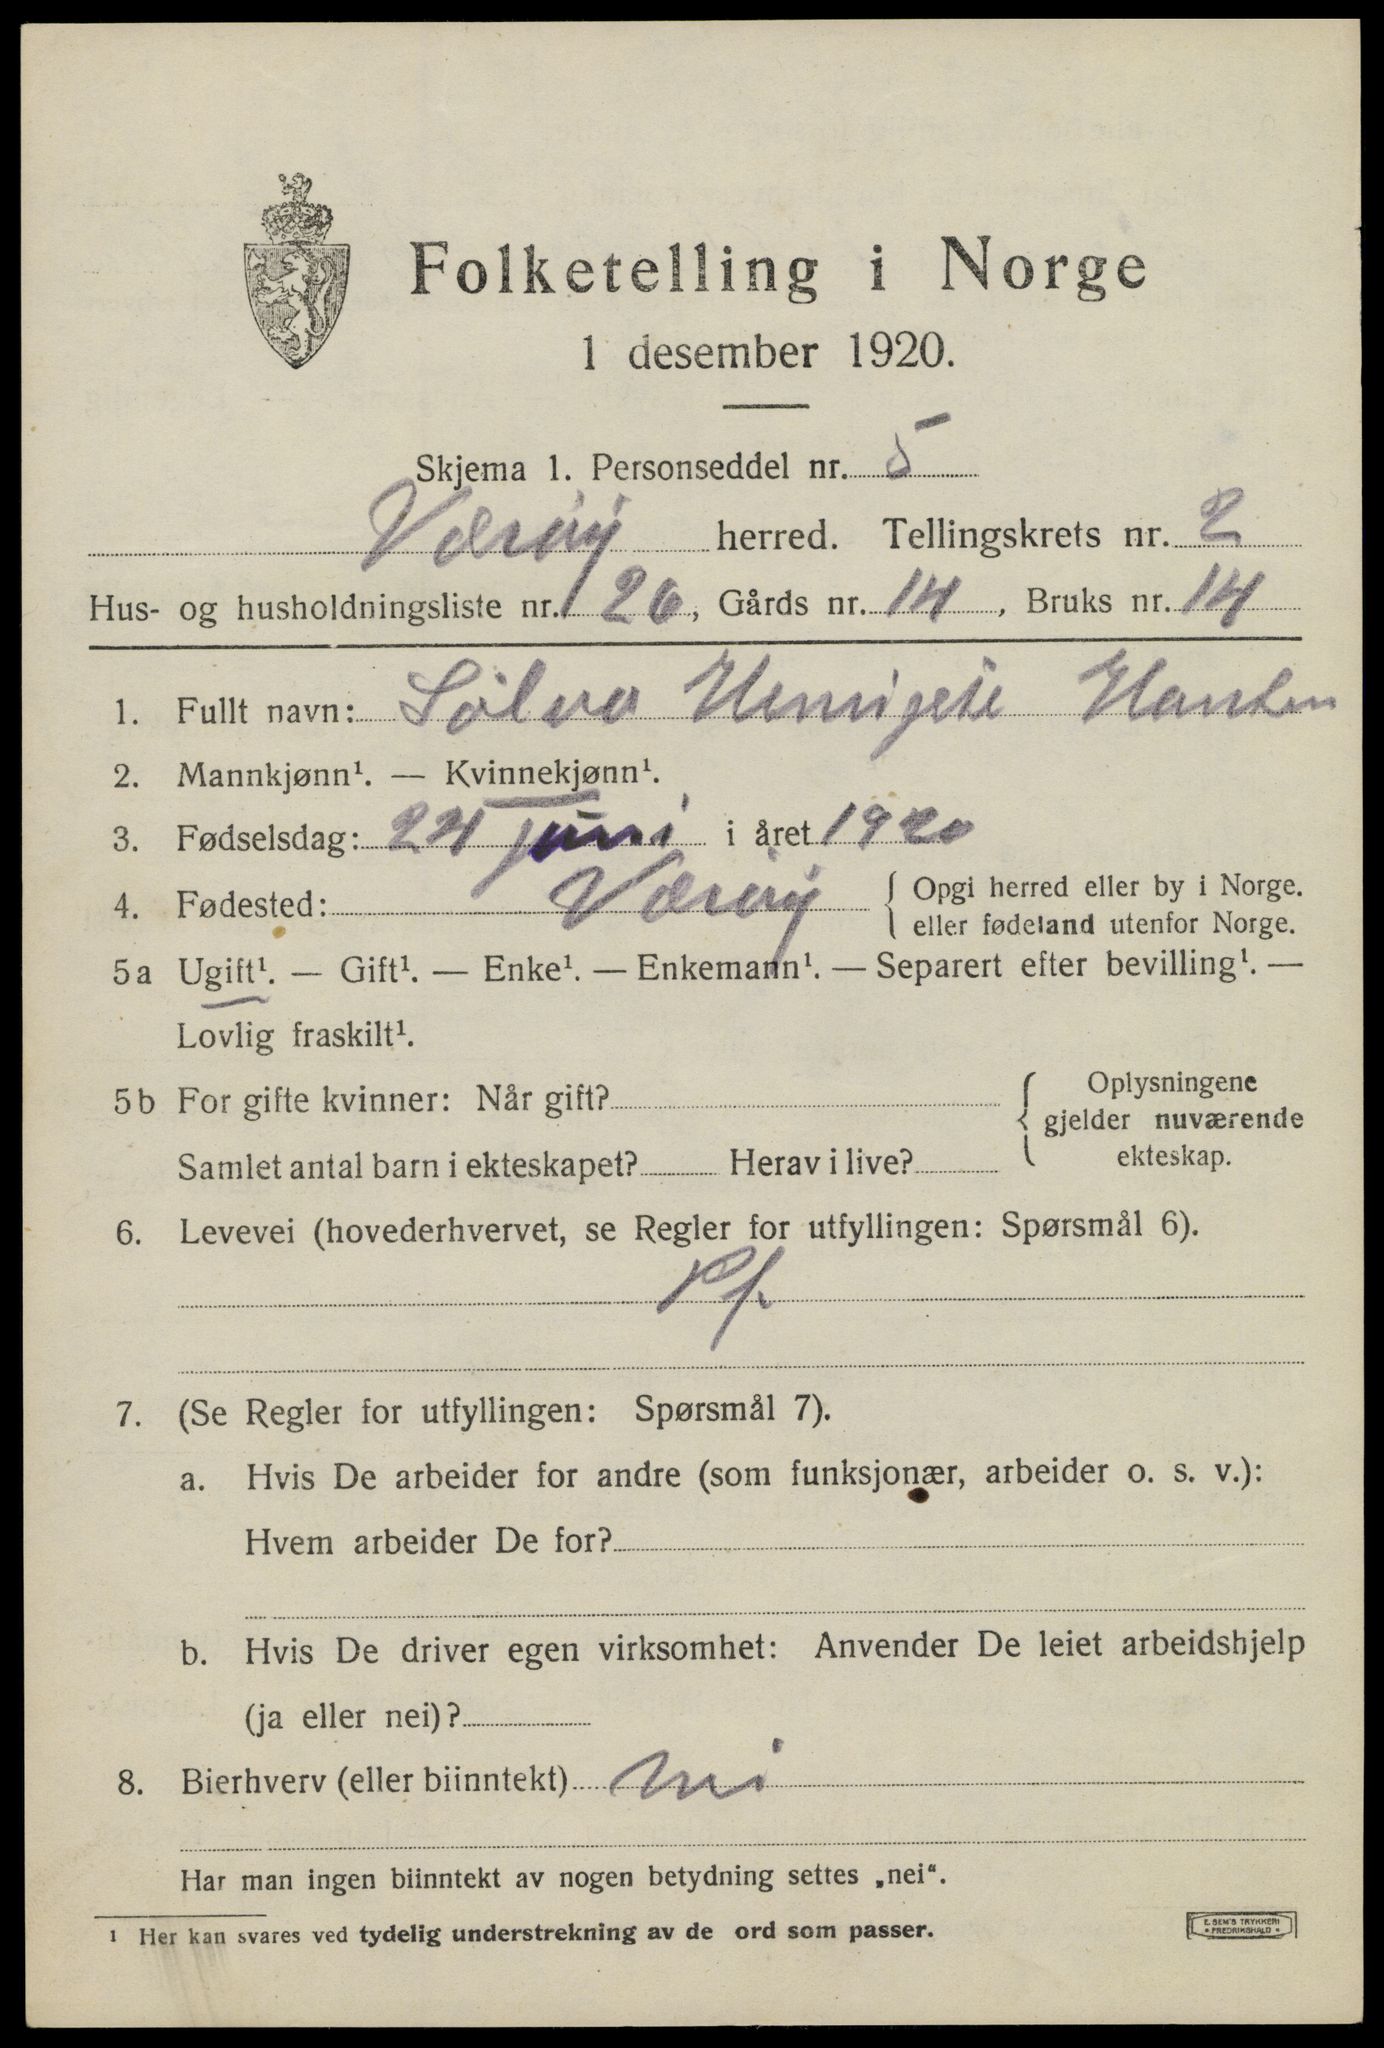 Folketelling i Norge
1 desember 1920.
Skjema 1. Personseddel nr. 5
Værøy herred. Tellingskrets nr. 2
Hus- og husholdningsliste nr. 26, Gårds nr. 14, Bruks nr. 14
1. Fullt navn: Sölva Hansen
2. Mannkjønn¹. — Kvinnekjønn¹.
3. Fødselsdag: 24 juni i året 1920
4. Fødested: Værøy { Opgi herred eller by i Norge.
eller fødeland utenfor Norge.
5a Ugift¹. — Gift¹. — Enke¹. — Enkemann¹. — Separert efter bevilling¹. —
Lovlig fraskilt¹.
5b For gifte kvinner: Når gift? { Oplysningene
gjelder nuværende
ekteskap.
Samlet antal barn i ekteskapet? Herav i live?
6. Levevei (hovederhvervet, se Regler for utfyllingen: Spørsmål 6).
Pf.
7. (Se Regler for utfyllingen: Spørsmål 7).
a. Hvis De arbeider for andre (som funksjonær, arbeider o. s. v.):
Hvem arbeider De for?
b. Hvis De driver egen virksomhet: Anvender De leiet arbeidshjelp
(ja eller nei)?
8. Bierhverv (eller biinntekt) nei
Har man ingen biinntekt av nogen betydning settes „nei“.
¹ Her kan svares ved tydelig understrekning av de ord som passer.
E. SEM'S TRYKKERI
• FREDRIKSHALD •